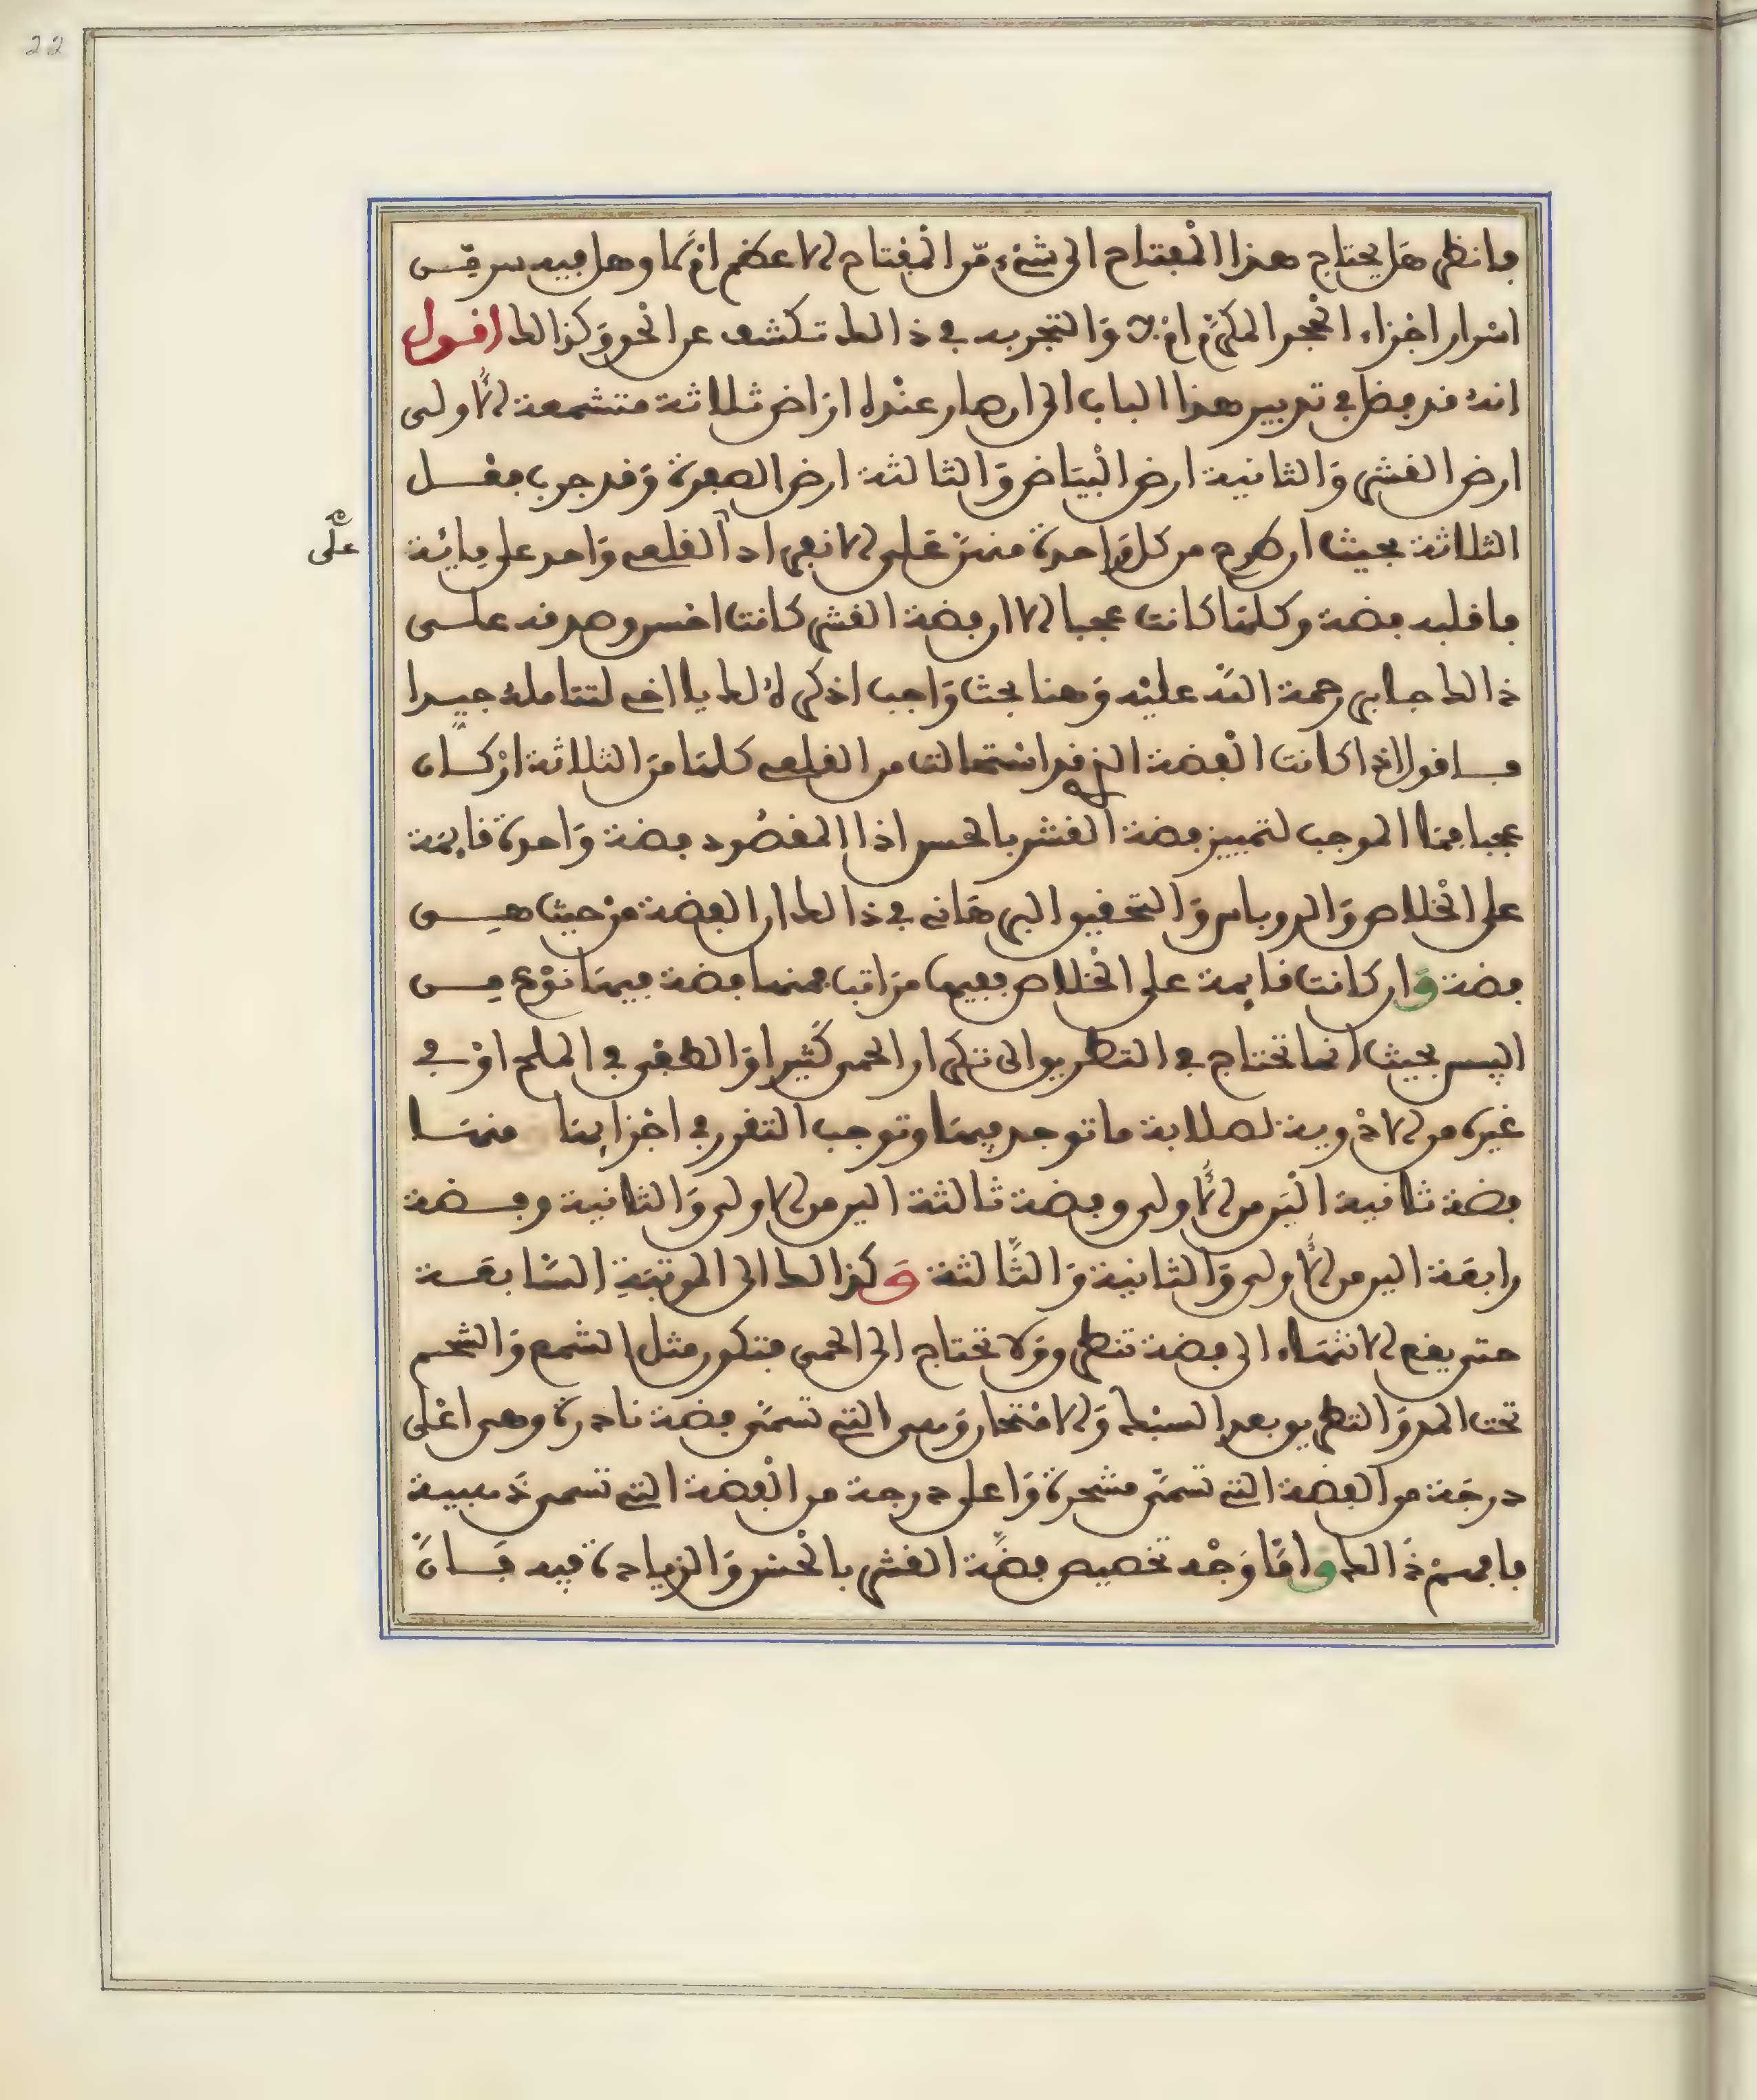 22
فانظر هل يحتاج هذا المفتاح الى شيء من المفتاح الاعظم ام لا وهل فيه سر من
اسرار اجزاء الحجر المكرم ام لا والتجربه في ذالك تكشف عن الحق وكذالك اقول
انه قد فضل في تدبير هذا الباب الى ان صار عنده اراض ثلاثة متشمعة الاولى
ارض القشر والثانية ارض البياض والثالثة ارض الصفرة وقد جرب فعل
الثلاثة بحيث ان طرح من كل واحدة منهن على الانفراد القلعي واحد على مائة
على
فاقلبه فضة وكلها كانت عجبا الا ان فضة القشر كانت احسن وصدقه على
ذالك جابر رحمة الله عليه وهنا بحث واجب اذكره لك يا اخي لتتامله جيدا
فاقول اذا كانت الفضة الذي قد استحالت من القلعي كلها من الثلاثة اركان
عجبا فما الموجب لتمييز فضة القشر بالحسن اذا المقصود فضة واحدة قايمة
على الخلاص والروباس والتحقيق البرهاني في ذالك ان الفضة من حيث هي
فضة وان كانت قايمة على الخلاص ففيها مراتب فمنها فضة فيها نوع من
اليبس بحيث انها تحتاج في التطريق الى تكرار الحمى كثيرا والطفي في الملح او في
غيره من الادوية لصلابة ما توجد فيها وتوجب التفرق في اجزايها منها
فضة ثانية الين من الاولى وفضة ثالثة الين من الاولى والثانية وفضة
رابعة الين من الاولى والثانية والثالثة وكذالك الى المرتبة السابعة
حتى يقع الانتهاء الى فضة تنطرق ولا تحتاج الى الحمى فتكون مثل الشمع والشحم
تحت المد والتطريق بعد السبك والامتحان وهي التي تسمى فضة نادرة وهي اعلى
درجة من الفضة التي تسمى مشحرة واعلى درجة من الفضة التي تسمى ذهبية
فافهم ذالك واما وجه تخصيص فضة القشر بالحسن والزيادة فيه فان